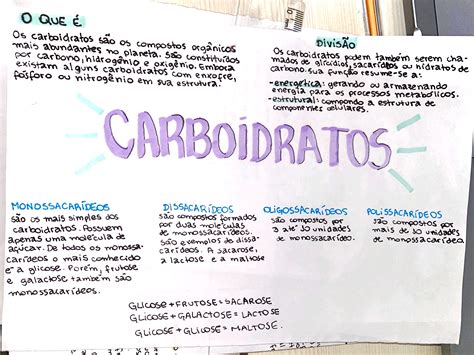 O QUE É
Os carboidratos são os compostos orgânicos
mais abundantes no planeta. São constituídos
por carbono, hidrogênio e oxigênio. Embora
existam alguns carboidratos com enxofre,
fósforo ou nitrogênio em sua estrutura.
DIVISÃO
Os carboidratos podem também serem cha-
mados de glicídios, sacarídeos ou hidratos de
carbono. sua função resume-se a:
-energética: gerando ou armazenando
energia para os processos metabólicos.
-estrutural: compondo a estrutura de
componentes celulares.
CARBOIDRATOS
MONOSSACARÍDEOS
são os mais simples dos
carboidratos. Possuem
apenas uma molécula de
açúcar. De todos os monossa-
carídeos o mais conhecido
é a glicose. Porém, frutose
e galactose também são
monossacarídeos.
DISSACARÍDEOS
são compostos formados
por duas moléculas
de monossacarídeos.
são exemplos de dissa-
carídeos. A sacarose,
a lactose e a maltose
OLIGOSSACARÍDEOS
são compostos por
3 até 10 unidades
de monossacarídeo.
POLISSACARÍDEOS
são compostos por
mais de 10 unidades
de monossacarídeo
GLICOSE+FRUTOSE=SACAROSE
GLICOSE+GALACTOSE=LACTOSE
GLICOSE+GLICOSE=MALTOSE.